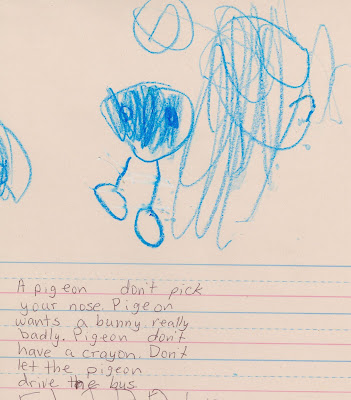 A pigeon don't pick
your nose. Pigeon
wants a bunny really
badly. Pigeon don't
have a crayon. Don't
let the pigeon
drive the bus